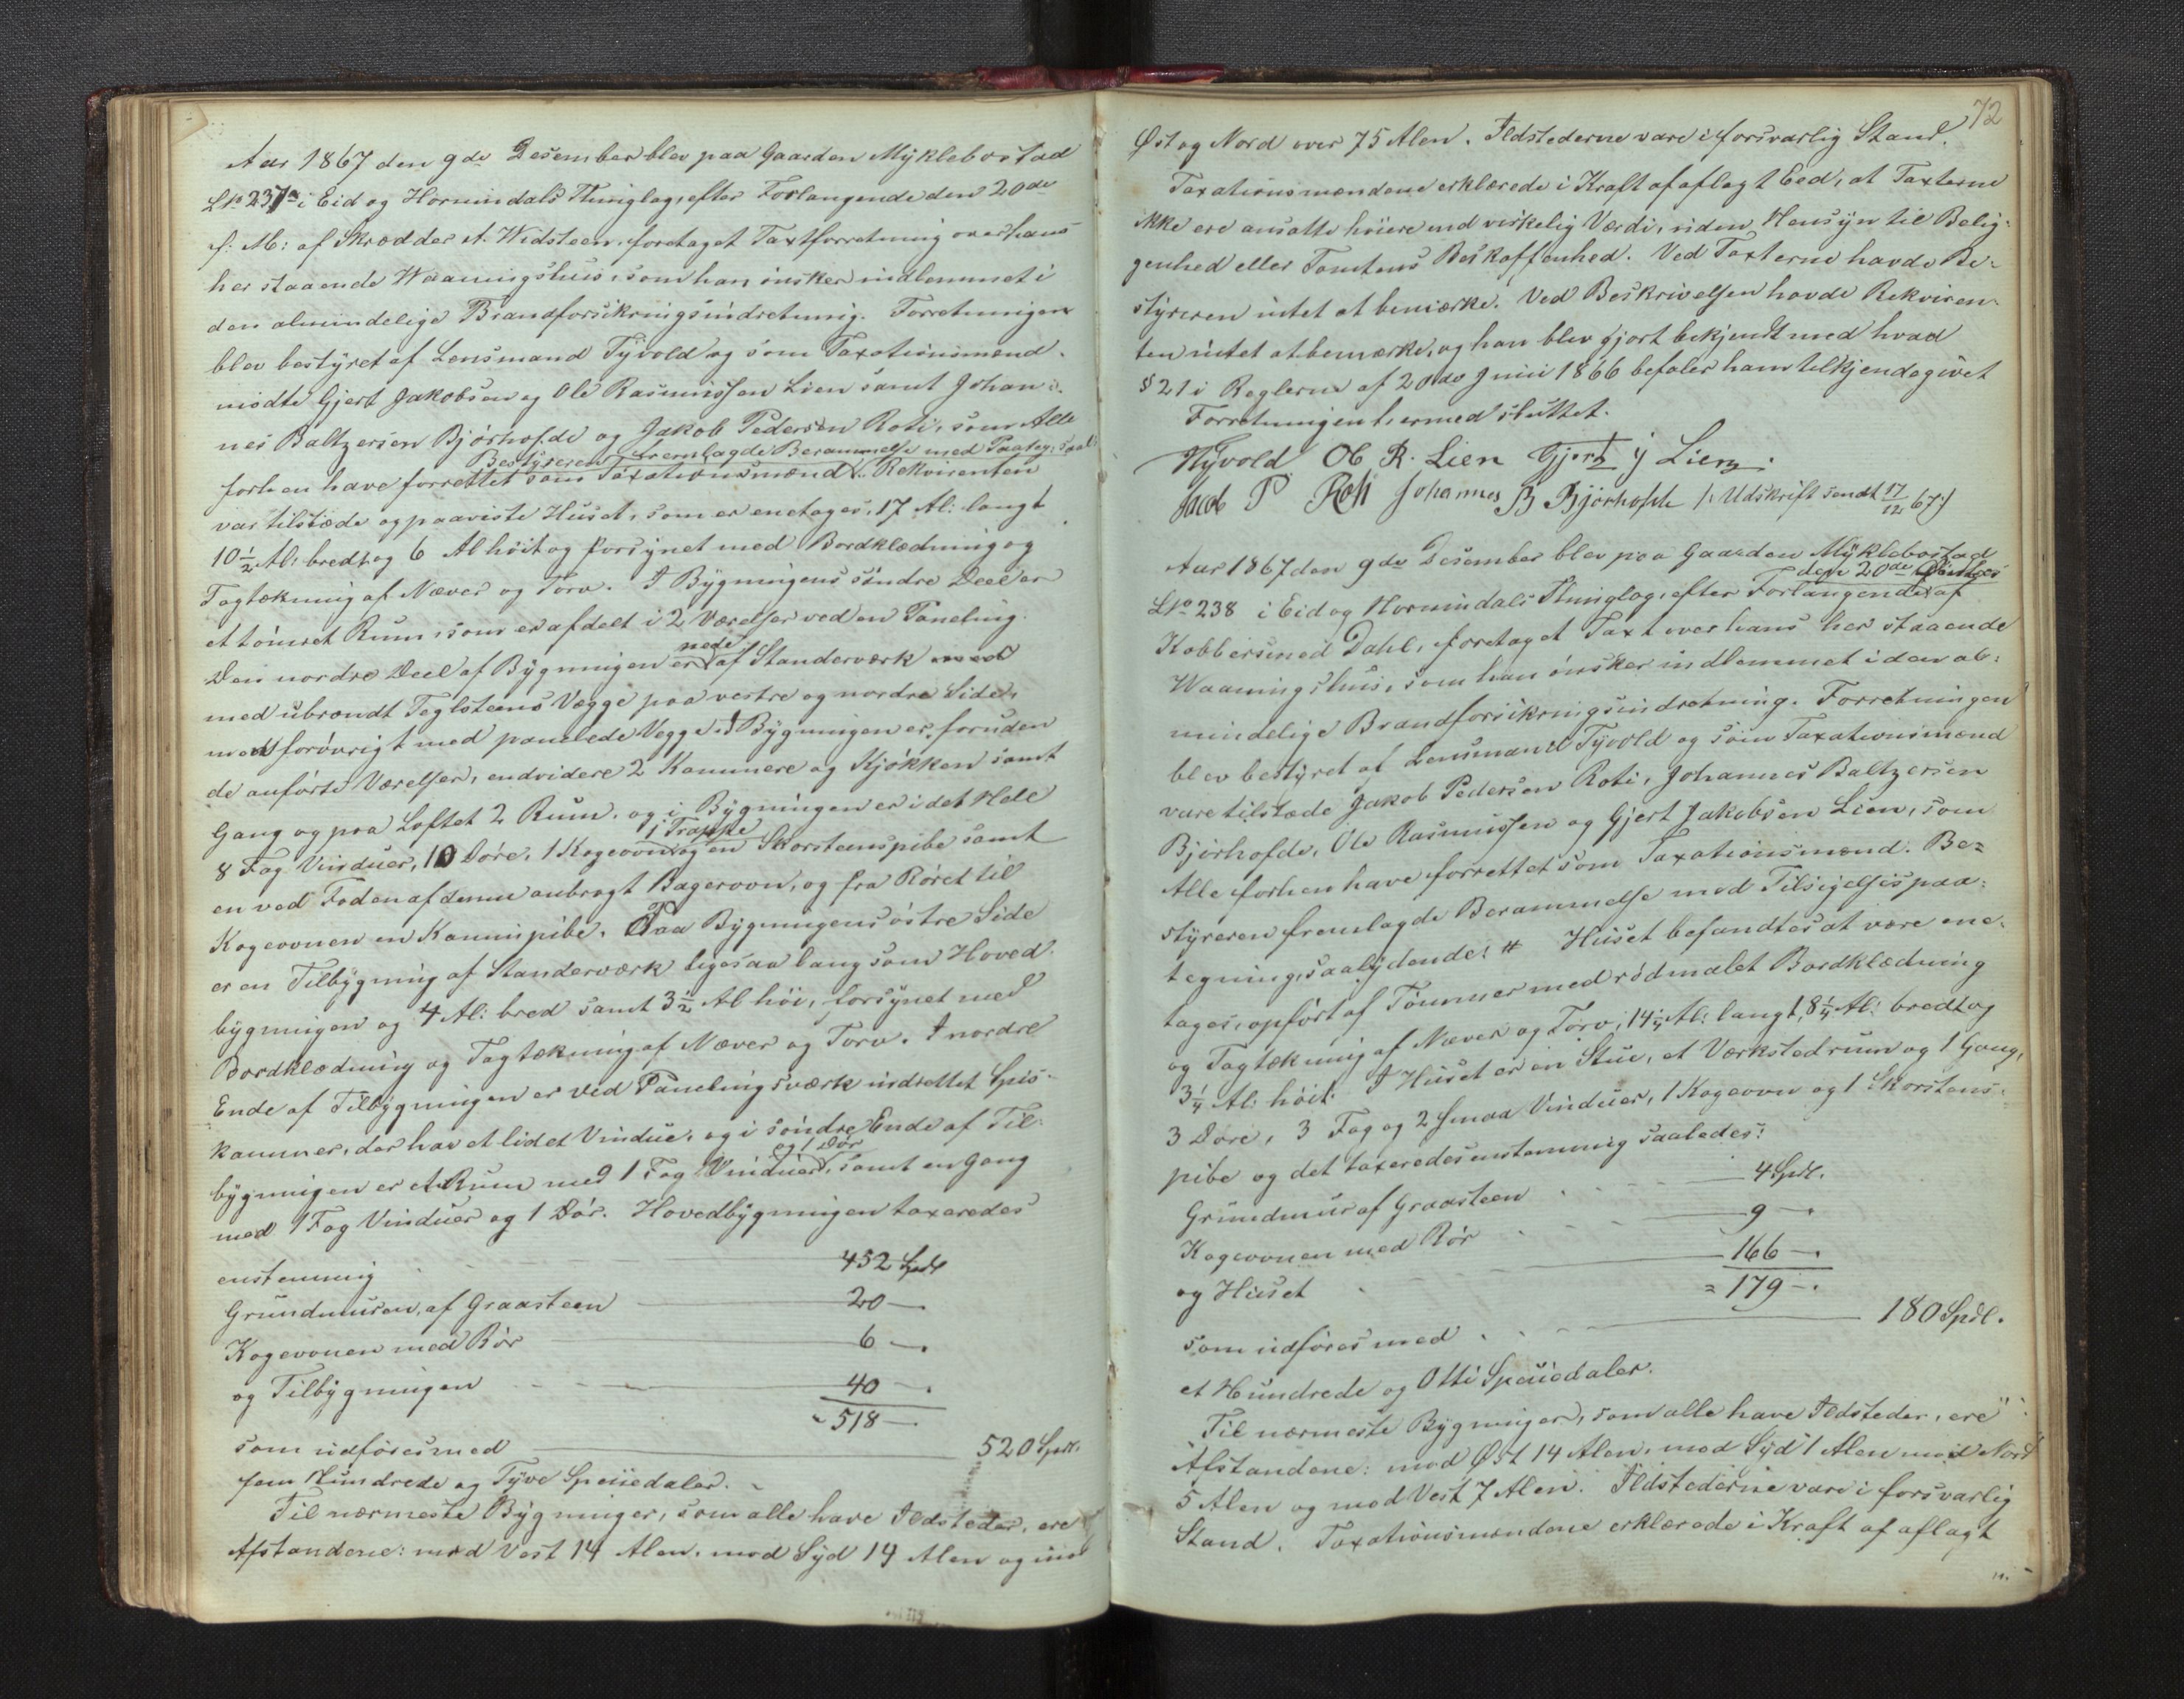 Aar 1867 den 9de Desember blev paa Gaarden Myklebostad
LNo 237a i Eid og Hornindals Thinglag, efter Forlangende den 20de
f: M: af Skrædder A. Widsteen, foretaget Taxtforretning over hans
her staaende Waaningshuus, som han ønsker indlemmet i
den almindelige Brandforsikringsindretning. Forretningen
blev bestyret af Lensmand Tyvold og som Taxationsmænd
mødte Gjert Jakobsen og Ole Rasmussen Lien samt Johan-
nes Baltzersen Bjørhofde og Jakob Pedersen Roti, som Alle
Bestyreren fremlagde Berammelse med Paateg: saal:
forhen have forrettet som Taxationsmænd. Rekvirenten
var tilstæde og paaviste Huset, som er enetages, 17 Al: langt
10 1/2 Al: bredt og 6 Al høit og forsynet med Bordklædning og
Tagtækning af Næver og Torv. I Bygningens søndre Deel er
et tømret Rum, som er afdelt i 2 Værelser ved en Paneling.
nede
Den nordre Deel af Bygningen er af Standerværk med
med ubrændt Teglsteens Vægge paa vestre og nordre Side,
med forøvrigt med panelede Vegge. I Bygningen er, foruden
de anførte Værelser, endvidere 2 Kammere og Kjøkken samt
Gang og paa Loftet 2 Rum, og i Bygningen er i det Hele
1 Trappe
8 Fag Vinduer, 10 Døre, 1 Kogeovn og en Skorsteenspibe samt
en ved Foden af denne anbragt Bagerovn, og fra Røret til
Kogeovnen en Kaminpibe. Paa Bygningens østre Side
er en Tilbygning af Standerværk ligesaa lang som Hoved-
bygningen og 4 Al: bred samt 3 1/2 Al høi, forsynet med
Bordklædning og Tagtækning af Næver og Torv. I nordre
Ende af Tilbygningen er ved Panelingsværk indrettet Spis-
kammer, der har et lidet Vindue, og i søndre Ende af Til-
og 1 Dør
bygningen er et Rum med 1 Fag Vinduer, samt en Gang
med 1 Fag Vinduer og 1 Dør. Hovedbygningen taxeredes
enstemmig 452 Spdl
Grundmuren, af Graasteen 20 —
Kogeovnen med Rør 6 —.
og Tilbygningen 40 —.
518 —
som udføres med 520 Spdl.
fem Hundrede og Tyve Speciedaler.
Til nærmeste Bygninger, som alle have Ildsteder, ere
Afstandene: mod Vest 14 Alen, mod Syd 14 Alen og mod
72
Øst og Nord over 75 Alen. Ildstederne vare i forsvarlig Stand.
Taxationsmændene erklærede i Kraft af aflagt Eed, at Taxterne
ikke ere ansatte høiere end virkelig Værdi, uden Hensyn til Belig-
genhed eller Tomtens Beskaffenhed. Ved Taxterne havde Be-
styreren intet at bemærke. Ved Beskrivelsen havde Rekviren-
ten intet at bemærke, og han blev gjort bekjendt med hvad
§ 21 i Reglerne af 20de Juni 1866 befaler ham tilkjendegivet
Forretningen hermed sluttet.
Tyvold Ol R. Lien Gjert J Lien.
Jacob P Roti Johannes B Bjørhofde /: Udskrift sendt 17/12 67:/
Aar 1867 den 9de Desember blev paa Gaarden Myklebostad
den 20de
LNo 238 i Eid og Hornindals Thinglag, efter Forlangende af
Kobbersmed Dahl, foretaget Taxt over hans her staaende
Waaningshuus, som han ønsker indlemmet i den al-
mindelige Brandforsikringsindretning. Forretningen
blev bestyret af Lensmand Tyvold og som Taxationsmænd
vare tilstæde Jakob Pedersen Roti, Johannes Baltzersen
Bjørhofde, Ole Rasmussen og Gjert Jakobsen Lien, som
Alle forhen have forrettet som Taxationsmænd. Be-
styreren fremlagde Berammelse med Tilsigelsespaa-
tegning, saalydende: # Huset befandtes at være ene-
tages, opført af Tømmer med rødmalet Bordklædning
og Tagtækning af Næver og Torv, 14 1/4 Al: langt, 8 1/4 Al: bredt og
3 1/4 Al: høit. I Huset er en Stue, et Værkstedrum og 1 Gang,
3 Døre, 3 Fag og 2 smaa Vinduer, 1 Kogeovn og 1 Skorstens-
pibe og det taxeredes enstemmig saaledes:
Grundmur af Graasteen 4 Spdl.
Kogeovnen med Rør 9 —.
og Huset 166 —.
= 179 —.
som udføres med 180 Spdl.
et Hundrede og Otti Speciedaler.
Til nærmeste Bygninger, som alle have Ildsteder, ere
Afstandene: mod Øst 14 Alen, mod Syd 1 Alen mod Nord
5 Alen og mod Vest 7 Alen. Ildstederne vare i forsvarlig
Stand. Taxationsmændene erklærede i Kraft af aflagt